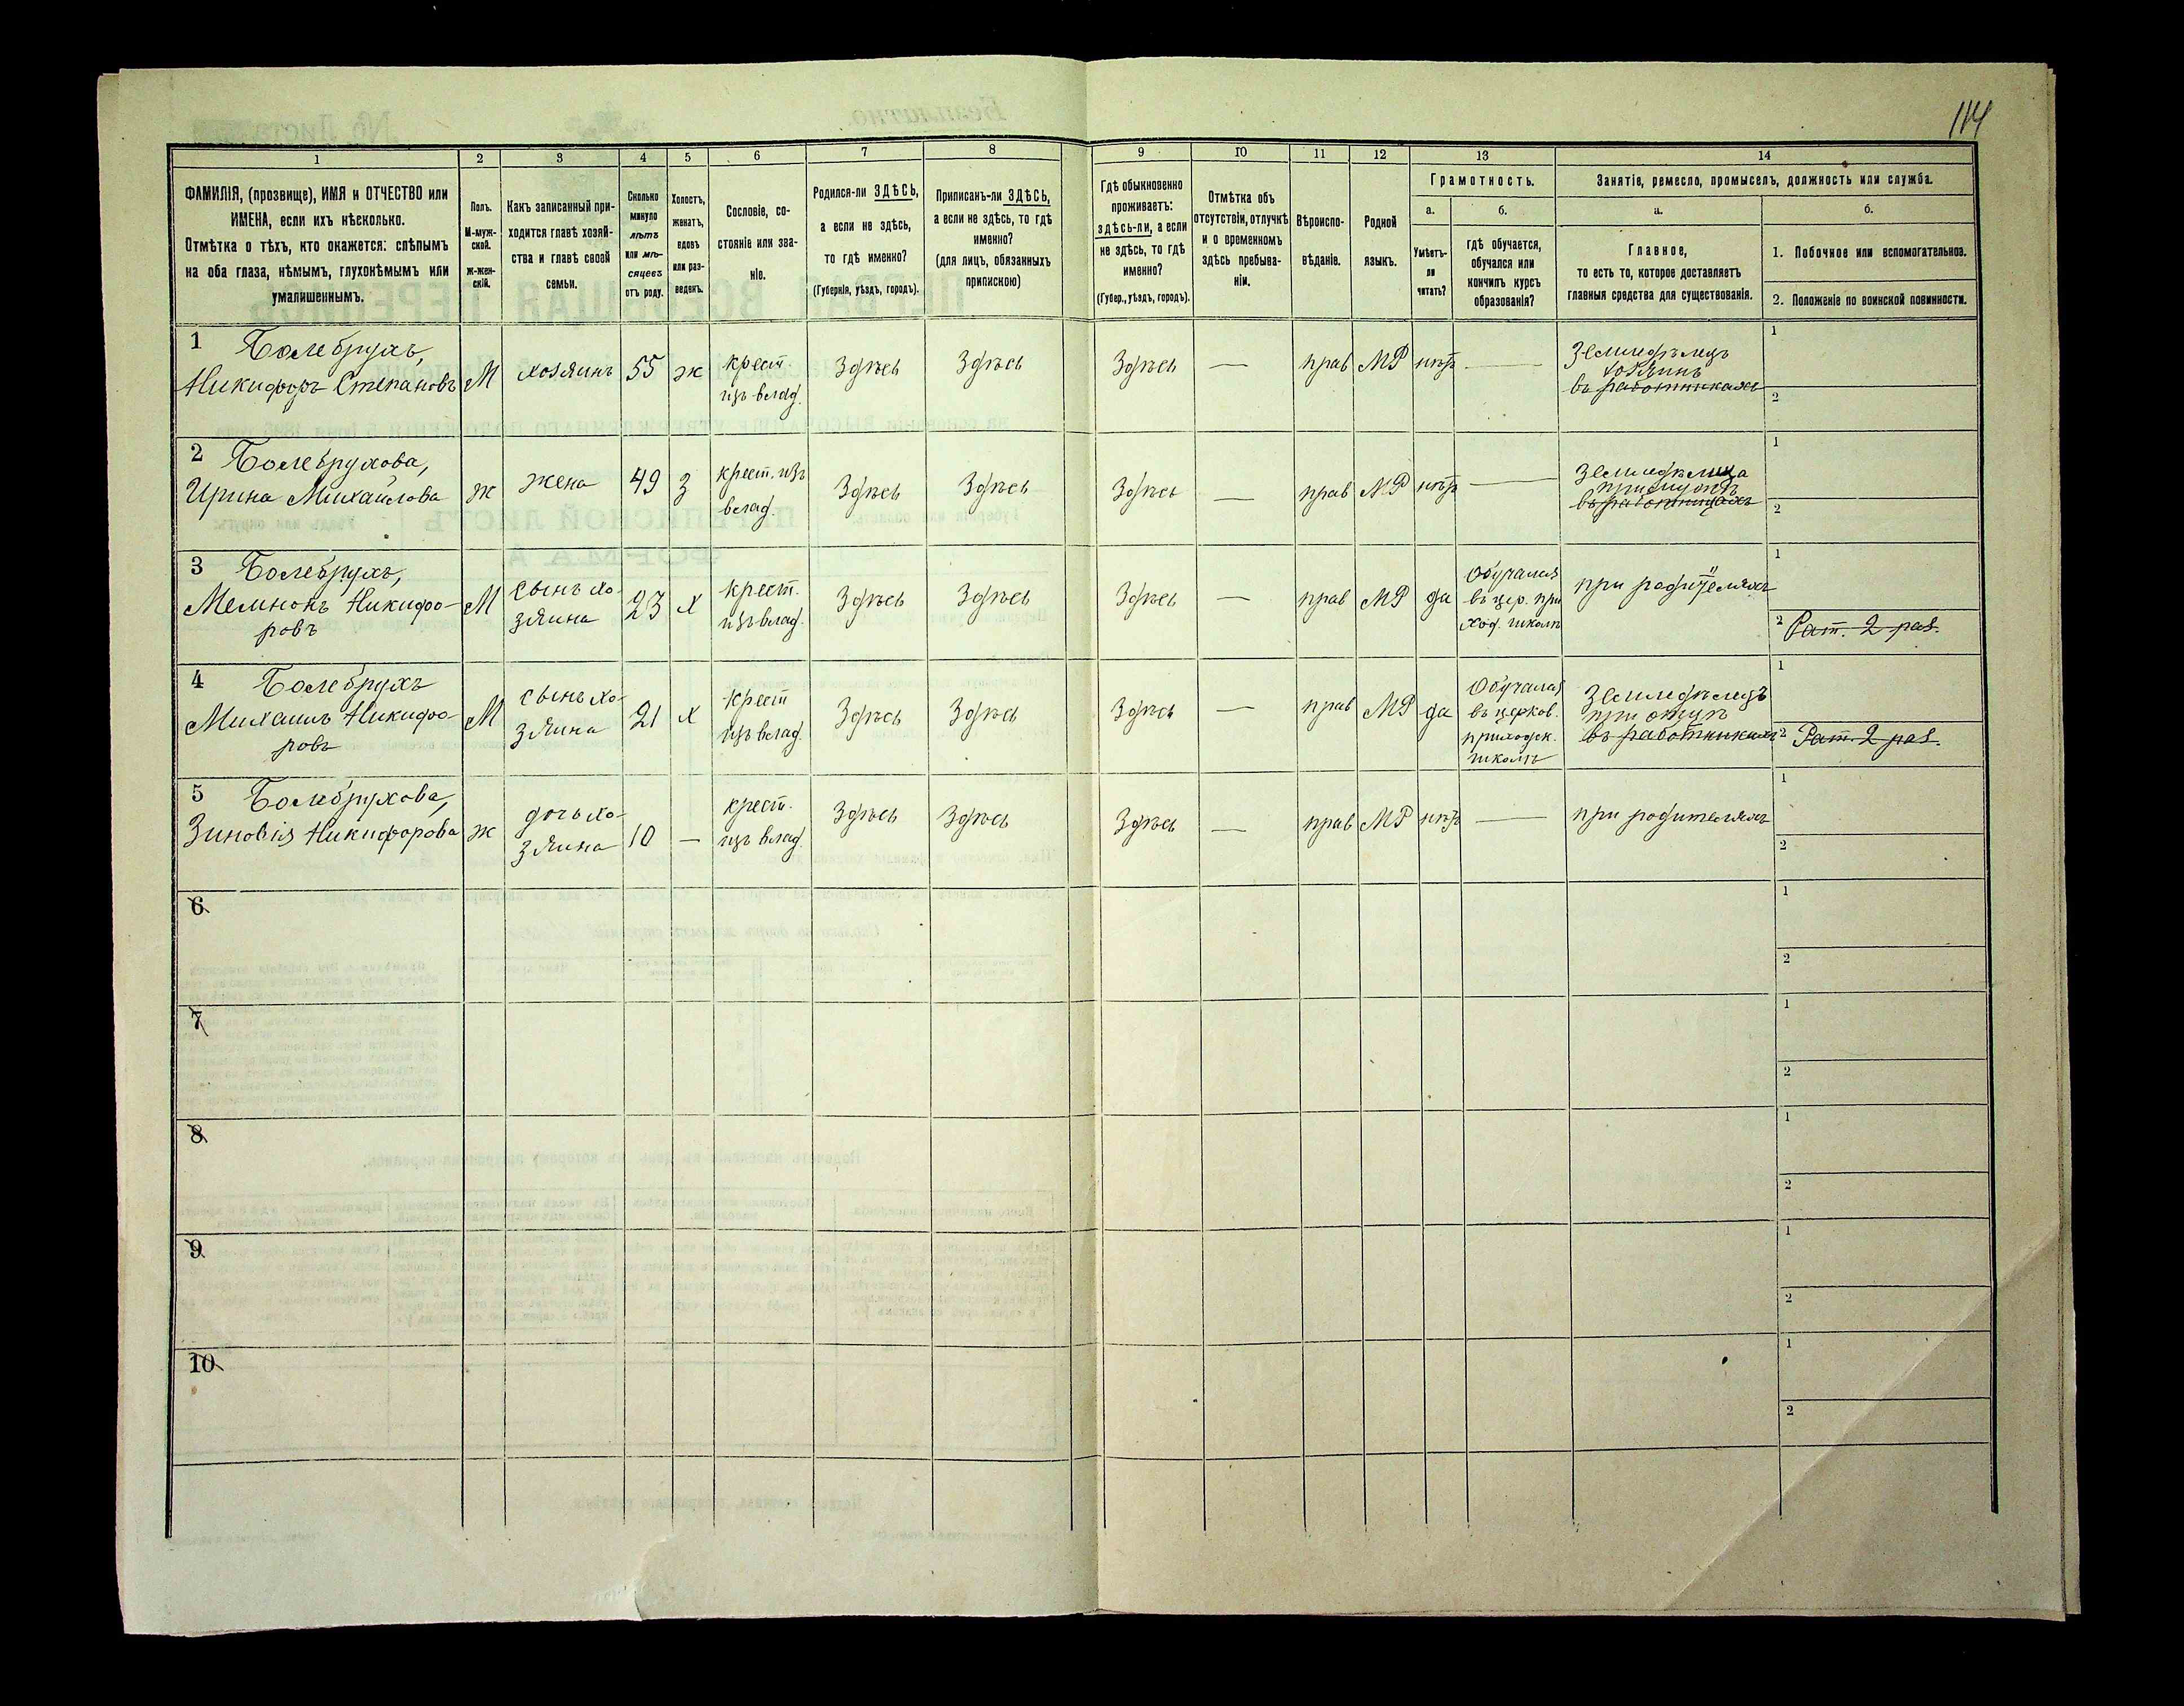 114
1
2
3
4
5
6
7
8
9
10
11
12
13
14
ФАМИЛІЯ, (прозвище), ИМЯ и ОТЧЕСТВО или
ИМЕНА, если ихъ нѣсколько.
Отмѣтка о тѣхъ, кто окажется: слѣпымъ
на оба глаза, нѣмымъ, глухонѣмымъ или
умалишеннымъ.
Полъ.
М-муж-
ской.
Ж-жен-
скій.
Какъ записанный при-
ходится главѣ хозяй-
ства и главѣ своей
семьи.
Сколько
минуло
лѣтъ
или мѣ-
сяцевъ
отъ роду.
Холостъ,
женатъ,
вдовъ
или раз-
веденъ.
Сословіе, со-
стояніе или зва-
ніе.
Родился-ли ЗДѢСЬ,
а если не здѣсь,
то гдѣ именно?
(Губернія, уѣздъ, городъ).
Приписанъ-ли ЗДѢСЬ,
а если не здѣсь, то гдѣ
именно?
(для лицъ, обязанныхъ
припискою)
Гдѣ обыкновенно
проживаетъ:
здѣсь-ли, а если
не здѣсь, то гдѣ
именно?
(Губер., уѣздъ, городъ).
Отмѣтка объ
отсутствіи, отлучкѣ
и о временномъ
здѣсь пребыва-
ніи.
Вѣроиспо-
вѣданіе.
Родной
языкъ.
Грамотность.
а.
б.
Умѣетъ-
ли
читать?
гдѣ обучается,
обучался или
кончилъ курсъ
образованія?
Занятіе, ремесло, промыселъ, должность или служба.
а.
б.
Главное,
то есть то, которое доставляетъ
главныя средства для существованія.
1. Побочное или вспомогательное.
2. Положеніе по воинской повинности.
1 Болебрухъ,
Никифоръ Степановъ
М
хозяинъ
55
ж
крест
изъ влад.
Здѣсь
Здѣсь
Здѣсь
—
прав
МР
нѣтъ
—
Земледѣлецъ
хозяинъ
въ работникахъ
1
2
2 Болебрухова,
Ирина Михайлова
ж
жена
49
З
крест. изъ
влад.
Здѣсь
Здѣсь
Здѣсь
—
прав
МР
нѣтъ
—
Земледѣлица
при мужѣ
въ работницахъ
1
2
3 Болебрухъ,
Мемнонъ Никифо-
ровъ
М
сынъ хо-
зяина
23
х
крест.
изъ влад.
Здѣсь
Здѣсь
Здѣсь
—
прав
МР
да
Обучался
въ цер. при
ход. школѣ
при родителяхъ
1
2 Рат. 2 раз.
4 Болебрухъ
Михаилъ Никифо-
ровъ
М
сынъ хо-
зяина
21
х
крест
изъ влад.
Здѣсь
Здѣсь
Здѣсь
—
прав
МР
да
Обучался
въ церков.
приходск.
школѣ
Земледѣлецъ
при отцѣ
въ работникахъ
1
2 Рат. 2 раз.
5 Болебрухова,
Зиновія Никифорова
ж
дочь хо-
зяина
10
—
крест.
изъ влад.
Здѣсь
Здѣсь
Здѣсь
—
прав
МР
нѣтъ
—
при родителяхъ
1
2
6
1
2
7
1
2
8
1
2
9
1
2
10
1
2